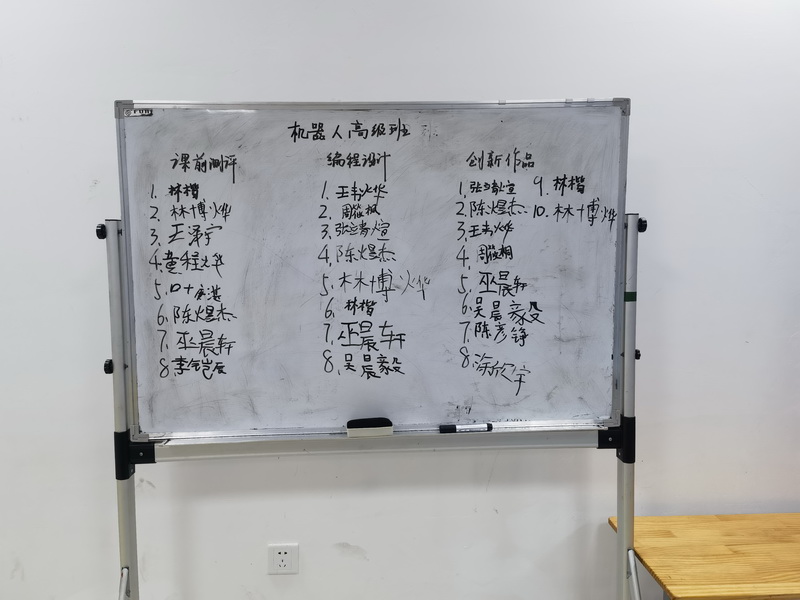 机器人高级班
课前测评
1. 林楷
2. 林博烨
3. 王泽宇
4. 黄程烨
5. 叶
6. 陈煜杰
7. 巫晨轩
8. 李铠辰
编程设计
1. 王韦烨
2. 周筱枫
3. 张立青煊
4. 陈煜杰
5. 林博烨
6. 林楷
7. 巫晨轩
8. 吴晨毅
创新作品
1. 张立青煊
2. 陈煜杰
3. 王韦烨
4. 周筱枫
5. 巫晨轩
6. 吴晨毅
7. 陈彦铮
8. 涂欣宇
9. 林楷
10. 林博烨